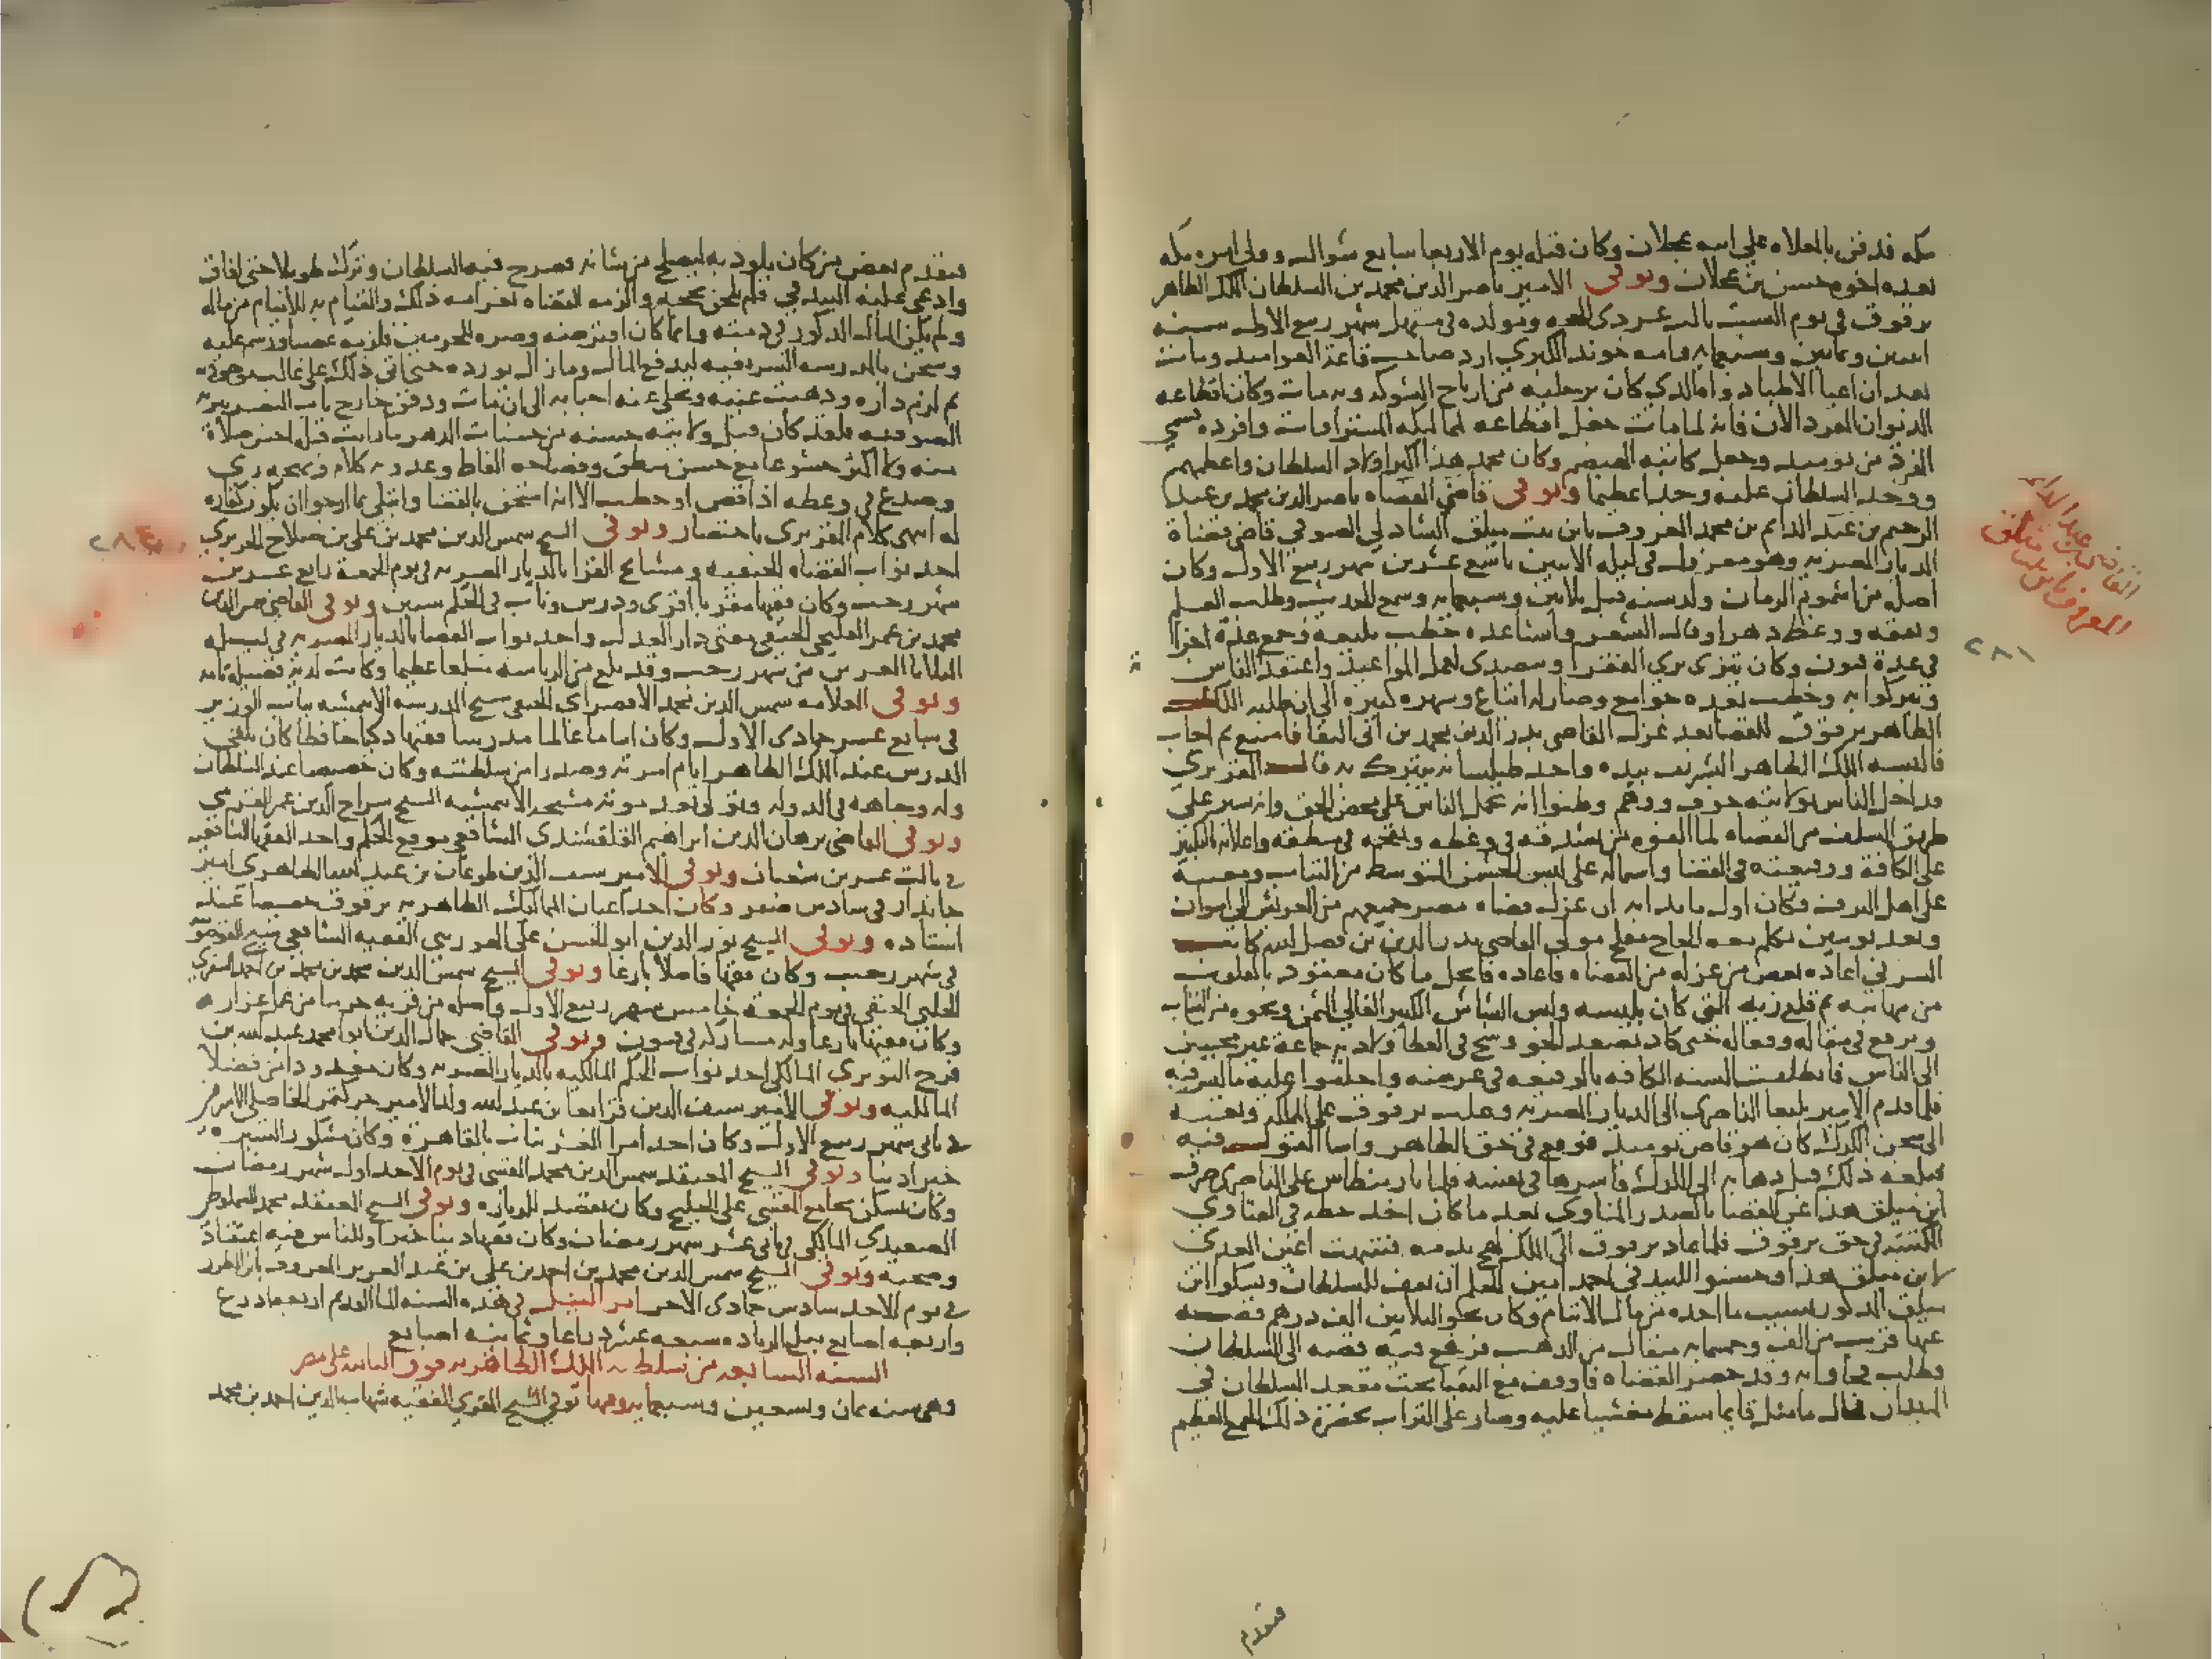 مكه فدفن بالمعلاه على ابيه عجلان وكان قتله يوم الاربعا سابع شوال وولى امره مكه
بعده اخوه حسن بن عجلان وتوفى الامير ناصر الدين محمد بن السلطان الملك الظاهر
برقوق فى يوم السبت ثالث عشر ذى الحجه ومولده فى مستهل شهر ربيع الاول سنه
اثنين وثمانين وسبعمايه وامه خوند الكبرى ارد صاحب قاعة العواميد ومات
بعد ان اعيا الاطبا دواه الذى كان برجليه من ارياح الشوكه وبه مات وكان اقطاعه
الديوان المفرد الان فانه لما مات جعل اقطاعه لمماليكه المشتراوات وافرده سمى
المفرد من يوميذ وجعل كاتبه الهيصم وكان محمد هذا اكبر اولاد السلطان واعظمهم
ووجد السلطان عليه وجدا عظيما وتوفى قاضى القضاه ناصر الدين محمد بن عبد
الرحيم بن عبد الدايم بن محمد المعروف بابن بنت ميلق الشادلى الصوفى قاضى قضاة
الديار المصريه وهو معزول فى ليله الاثنين تاسع عشرين شهر ربيع الاول وكان
اصله من اشموم الرمان ولد سنه قبل ثلاثين وسبعمايه وسمع الحديث وطلب العلم
وتفقه ووعظ دهرا وقال الشعر وانشا عده خطب بليغه وجمع عدة اجزا
فى عدة فنون وكان يتزى بزى الفقرا وتصدى لعمل المواعيد واعتقد الناس
وتبركوا به وخطب بعده جوامع وصار له اتباع وشهره كبيره الى ان طلبه الملك
الظاهر برقوق للقضا بعد عزل القاضى بدر الدين محمد بن ابى البقا فامتنع ثم اجاب
فالبسه الملك الظاهر التشريف بيده واخذ طيلسانه يتبرك به قال المقريزى
فداخل الناس بولايته خوف ووهم وظنوا انه يحمل الناس على محض الحق وانه يسير على
طريق السلف من القضاه لما الفوه من تشدقه فى وعظه وتفخمه فى منطقه واعلانه بالنكير
على الكافه ووقيعته فى القضا واشماله على لبس الخشن المتوسط من الثياب وتعيبه
على اهل الترف فكان اول ما بدا به ان عزل قضاه مصر جميعهم من العريش الى اسوان
وبعد يومين تكلم معه الحاج مفلح مولى القاضى بدر الدين بن فضل الله كاتب
السر فى اعاده بعض من عزله من القضاه فاعاده فانحل ما كان معقود بالقلوب
من مهابته ثم قلع زيه الذى كان يلبسه ولبس الشاش الكبير الغالى الثمن ونحوه من الثياب
وترفع فى مقاله وفعاله حتى كاد يصعد الجو وشح فى العطا ولاذ به جماعة غير محببين
الى الناس فانطلقت السنه الكافه بالوقيعه فى عرضه واختلقوا عليه ما ليس فيه
فلما قدم الامير يلبغا الناصرى الى الديار المصريه وغلب برقوق على المملكه وبعثه
الى سجن الكرك كان هو قاض يوميذ فوقع فى حق الظاهر واسا القول فيه
فبلغه ذلك قبل ذهابه الى الكرك فاسرها فى نفسه فلما ثار منطاش على الناصرى صرف
ابن ميلق هذا عن القضا بالصدر المناوى بعد ما كان اخذ خطه فى الفتاوى
المكتتبه فى حق برقوق فلما عاد برقوق الى الملك لهج بذمه فتنبهت اعين العدى
لابن ميلق هذا وحسنوا للبيدقى احمد امين الحكم ان يقف للسلطان ويشكو ابن
ميلق المذكور بسبب ما اخذه من مال الايتام وكان نحو الثلاثين الف درهم فضه
عنها قريب من الف وخمسمايه مثقال من الذهب فرفع فيه قصه الى السلطان
وطلب فجا وانه وقد حضر القضاه فاوقف مع النقبا تحت مقعد السلطان فى
الميدان فحال ما مثل قايما سقط مغشيا عليه وصار على التراب بحضرة ذلك الجمع العظيم
القاضى عبد الدايم
المعروف بابن بنت ميلق
٢٨١
فتقدم
فتقدم بعض من كان يلوذ به ليصلح من شانه فصرخ فيه السلطان وترك طويلا حتى افاق
وادعى عليه البيدقى فلم يلحن بحجته والزمه القضاه بغرامه ذلك والقيام به للايتام من ماله
ولم يكن المال المذكور فى ذمته وانما كان اقترضه وصره للحرمين فلزمه غصبا ورسم عليه
وسجن بالمدرسه الشريفيه ليدفع المال وما زال يورده حتى اتى ذلك على غالب موجوده
ثم لزم داره وذهبت عينه وتخلى عنه احبابه الى ان مات ودفن خارج باب النصر بتربه
الصوفيه ولقد كان قبل ولايته حسنه من حسنات الدهر ما رايت قبله احسن صلاة
منه ولا اكثر خشوعا مع حسن منطق وفصاحه الفاظ وعذوبه كلام وبهجه زى
وصدع فى وعظه اذا قص او خطب الا انه امتحن بالقضا وابتلى بما ارجو ان يكون كفاره
له انتهى كلام المقريزى باختصار وتوفى الشيخ شمس الدين محمد بن على بن صلاح الحريرى
احد نواب القضاه الحنفيه ومشايخ القرا بالديار المصريه فى يوم الجمعة رابع عشرين
شهر رجب وكان فقيها مقريا اقرى ودرس وناب فى الحكم سنين وتوفى القاضى صر الدين
محمد بن عمر القليجى الحنفى مفتى دار العدل واحد نواب القضا بالديار المصريه فى ليله
الثلاثا العشرين من شهر رجب وقد بلغ من الرياسه مبلغا عظيما وكانت لديه فضيله تامه
وتوفى العلامه شمس الدين محمد الاقصراى الحنفى شيخ المدرسه الايتمشيه بباب الوزير
فى سابع عشر جمادى الاولى وكان اماما عالما مدرسا فقيها ذكيا حافظا كان يلقى
الدرس عند الملك الظاهر ايام امرته وصدرا من سلطنته وكان خصيصا عند السلطان
وله وجاهه فى الدوله وتولى بعد موته مشيخه الايتمشيه الشيخ سراج الدين عمر القرمى
وتوفى القاضى برهان الدين ابراهيم القلقشندى الشافعى موقع الحكم واحد الفقها الشافعيه
فى ثالث عشرين شعبان وتوفى الامير سيف الدين طوغان بن عبد الله الظاهرى امير
جاندار فى سادس صفر وكان احد اعيان المماليك الظاهريه برقوق خصيصا عند
استاده وتوفى الشيخ نور الدين ابو الحسن على الهورينى الفقيه الشافعى شيخ القوصونيه
فى شهر رجب وكان فقيها فاضلا بارعا وتوفى الشيخ شمس الدين محمد بن محمد بن احمد
الحلبى الحنفى فى يوم الجمعه خامس شهر ربيع الاول واصله من قريه من عمل عزاز
وكان فقيها بارعا وله مشاركه فى فنون وتوفى القاضى جمال الدين ابو محمد عبد الله بن
فرج النويرى المالكى احد نواب الحكم المالكيه بالديار المصريه وكان معدودا من فضلا
المالكيه وتوفى الامير سيف الدين قرابغا بن عبد الله والد الامير جركتمر الخاصكى الاشرفى
فى ثانى شهر ربيع الاول وكان احد امرا العشرينات بالقاهرة وكان مشكور السيره
خيرا دينا وتوفى الشيخ المعتقد شمس الدين محمد المقسى فى يوم الاحد اول شهر رمضان
وكان يسكن بجامع المقسى على الخليج وكان يقصد للزياره وتوفى الشيخ المعتقد محمد السملوطى
الصعيدى المالكى فى ثانى عشر شهر رمضان وكان فقيها دينا خيرا وللناس فيه اعتقاد
ومحبه وتوفى الشيخ شمس الدين محمد بن احمد بن على بن عبد العزيز المعروف بابن المطرز
فى يوم الاحد سادس جمادى الاخر امر النيل فى هذه السنه الما القديم اربعه اذرع
واربعه اصابع مبلغ الزياده سبعه عشر ذراعا وثمانيه اصابع
السنه السابعه من سلطنه الملك الظاهر برقوق الثانيه على مصر
وهى سنه ثمان وتسعين وسبعمايه وفيها توفى الشيخ المقرى الفقيه شهاب الدين احمد بن محمد
٢٨٤